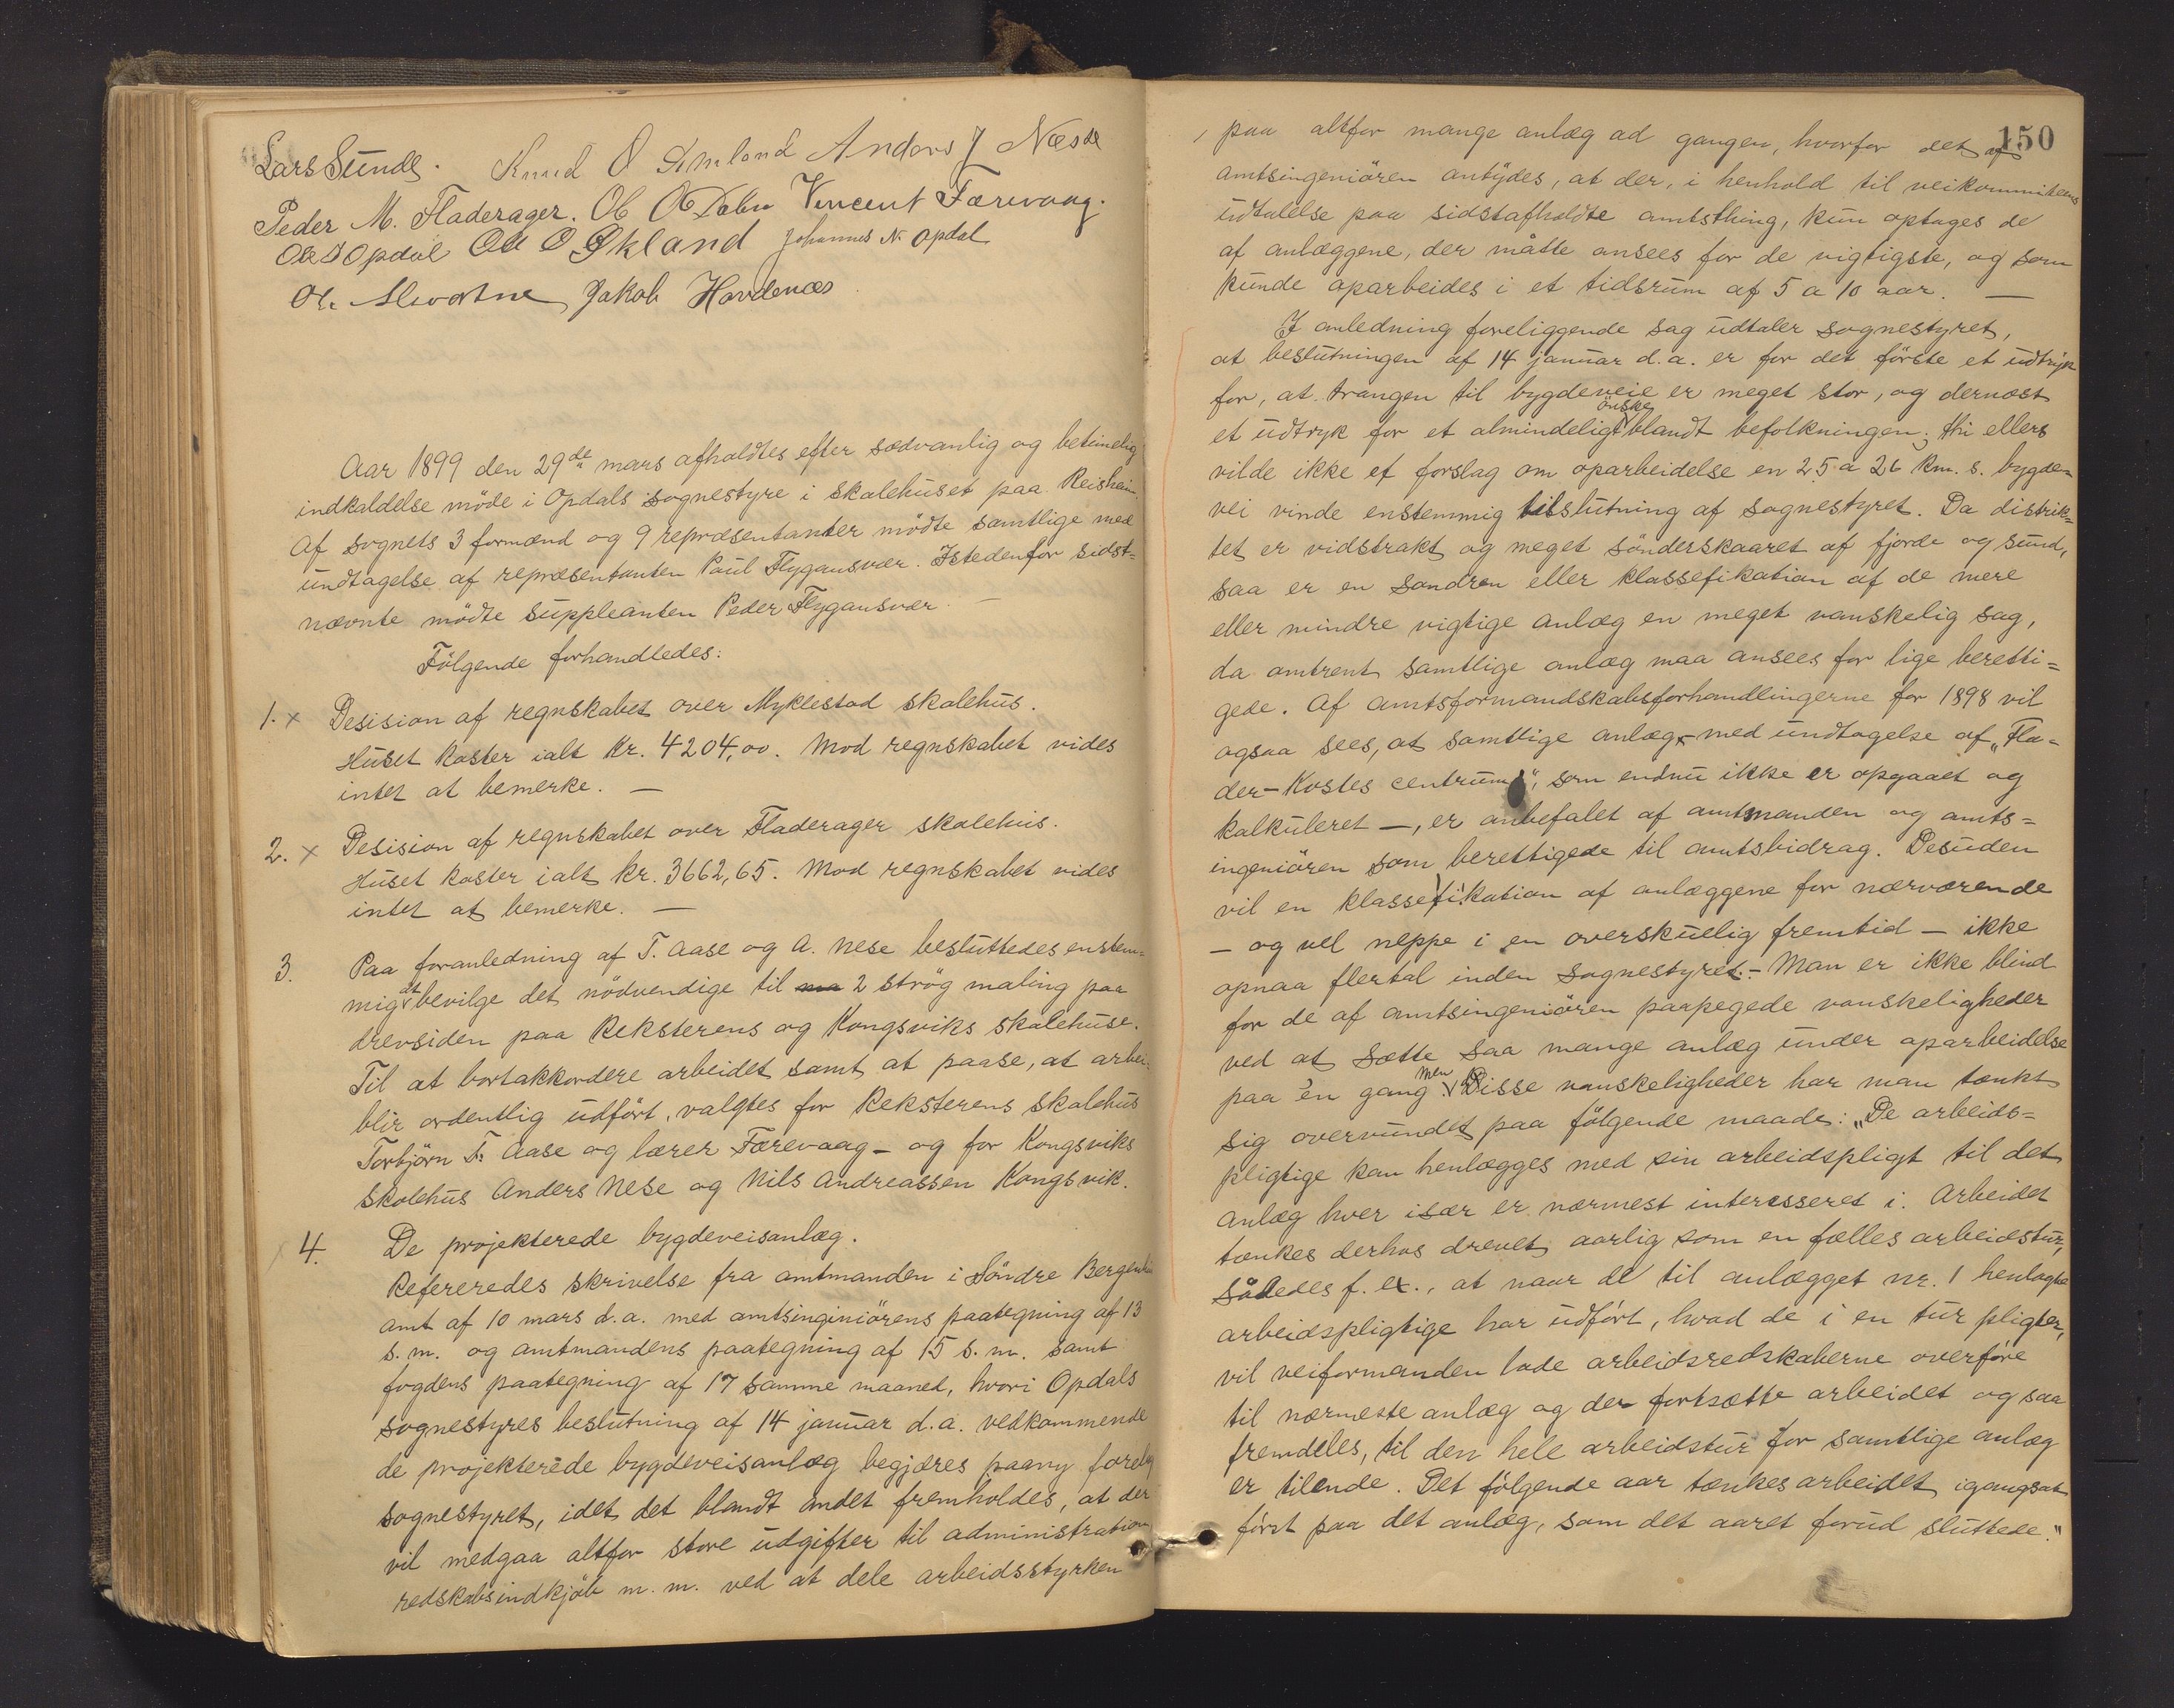 Lars Sunde. Knud O Amland Anders J Næse
Peder M. Fladerager. Ole O Dalen Vincent Færevaag.
Ole J Opdal Ole O Økland Johannes N. Opdal
Ole Jakob Hovdenæs
Aar 1899 den 29de mars afholdtes efter sædvanlig og betimelig
indkaldelse möde i Opdals sognestyre i skolehuset paa Reisheim.
Af sognets 3 formænd og 9 repræsentanter mödte samtlige med
undtagelse af repræsentanten Paul Flygansvær. Istedenfor sidst=
nævnte mödte suppleanten Peder Flygansvær. —
Fölgende forhandledes:
1. x Desision af regnskabet over Myklestad skolehus.
Huset koster ialt Kr. 4204,00. Mod regnskabet vides
intet at bemerke. —
2. x Desision af regnskabet over Fladerager skolehus.
Huset koster ialt kr. 3662,65. Mod regnskabet vides
intet at bemerke. —
3. Paa foranledning af T. Aase og A. Nese besluttedes enstem=
mig at bevilge det nödvendige til ma 2 strög maling paa
drevsiden paa Reksterens og Kongsviks skolehuse.
Til at bortakkordere arbeidet samt at paase, at arbei:
blir ordentlig udfört, valgtes for Reksterens skolehus
Torbjörn T. Aase og lærer Færevaag – og for Kongsviks
skolehus Anders Nese og Nils Andreassen Kongsvik.
4. De projekterede bygdeveisanlæg.
Refereredes skrivelse fra amtmanden i Söndre Bergenhus
amt af 10 mars d.a. med amtsinginiörens paategning af 13
s.m. og amtmandens paategning af 15 s.m. samt
fogdens paategning af 17 samme maaned, hvori Opdals
sognestyres beslutning af 14 januar d.a. vedkommende
de projekterede bygdeveisanlæg begjæres paany forelag
sognestyret, idet det blandt andet fremholdes, at der
vil medgaa altfor store udgifter til administration
redskabsindkjöb m.m. ved at dele arbeidsstyrken
150
paa altfor mange anlæg ad gangen, hvorfor det af
amtsingeniören antydes, at der, i henhold til veikommiteens
udtalelse paa sidstafholdte amtsthing, kun optages de
af anlæggene, der måtte ansees for de vigtigste, og som
kunde oparbeides i et tidsrum af 5 a 10 aar. —
I anledning foreliggende sag udtaler sognestyret,
at beslutningen af 14 januar d.a. er for det förste et udtryk
for, at trangen til bygdeveie er meget stor, og dernæst
et udtryk for et almindeligt önske blandt befolkningen; thi ellers
vilde ikke et forslag om oparbeidelse en 25 a 26 km. s. bygde=
vei vinde enstemmig tilslutning af sognestyret. Da distrik=
tet er vidstrakt og meget sönderskaaret af fjorde og sund,
saa er en sondren eller klassefikation af de mere
eller mindre vigtige anlæg en meget vanskelig sag,
da omtrent samtlige anlæg maa ansees for lige beretti=
gede. Af amtsformandskabsforhandlingerne for 1898 vil
ogsaa sees, at samtlige anlæg – med undtagelse af „Fla-
der-Kostes centrum", som endnu ikke er opgaaet og
kalkuleret —, er anbefalet af amtmanden og amts=
ingeniören som berettigede til amtsbidrag. Desuden
vil en klassefikation af anlæggene for nærværende
— og vel neppe i en overskuelig fremtid — ikke
opnaa flertal inden sognestyret. – Man er ikke blind
for de af amtsingeniören paapegede vanskeligheder
ved at sætte saa mange anlæg under oparbeidelse
paa én gang. Men Disse vanskeligheder har man tænkt
sig overvundet paa fölgende maade: „De arbeids=
pligtige kan henlægges med sin arbeidspligt til det
anlæg hver især er nærmest interesseret i. Arbeidet
tænkes derhos drevet aarlig som en fælles arbeidstur,
således f. ex., at naar de til anlægget nr. 1 henlagte
arbeidspligtige har udfört, hvad de i en tur pligter,
vil veiformanden lade arbeidsredskaberne overföre
til nærmeste anlæg og der fortsætte arbeidet og saa
fremdeles, til den hele arbeidstur for samtlige anlæg
er tilende. Det fölgende aar tænkes arbeidet igangsat
först paa det anlæg, som det aaret forud sluttede."